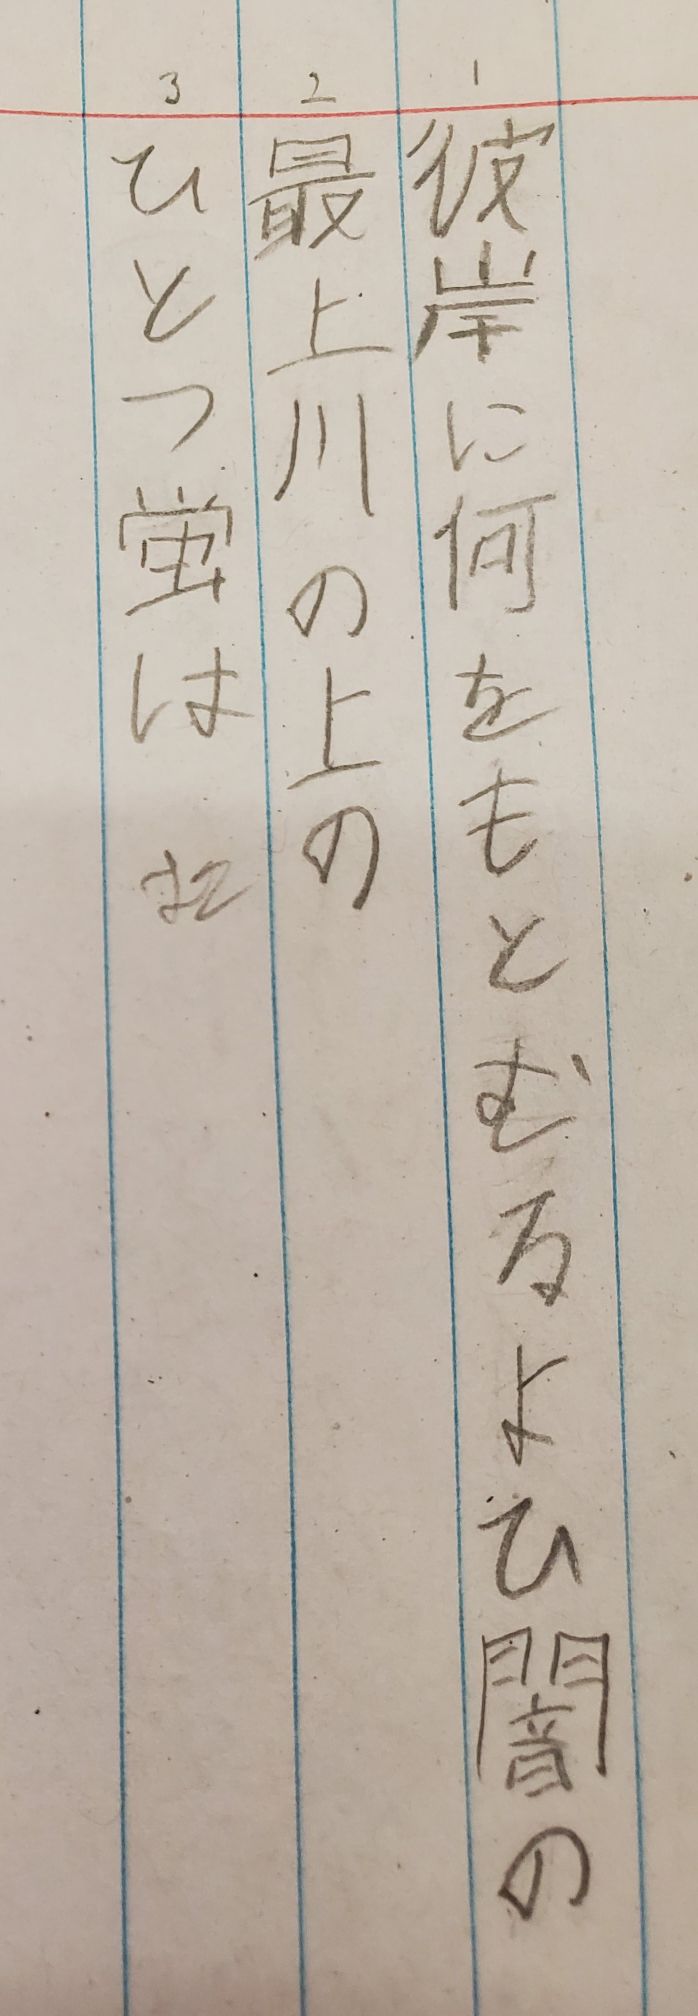 1
彼岸に何をもとむるよひ闇の
2
最上川の上の
3
ひとつ蛍は